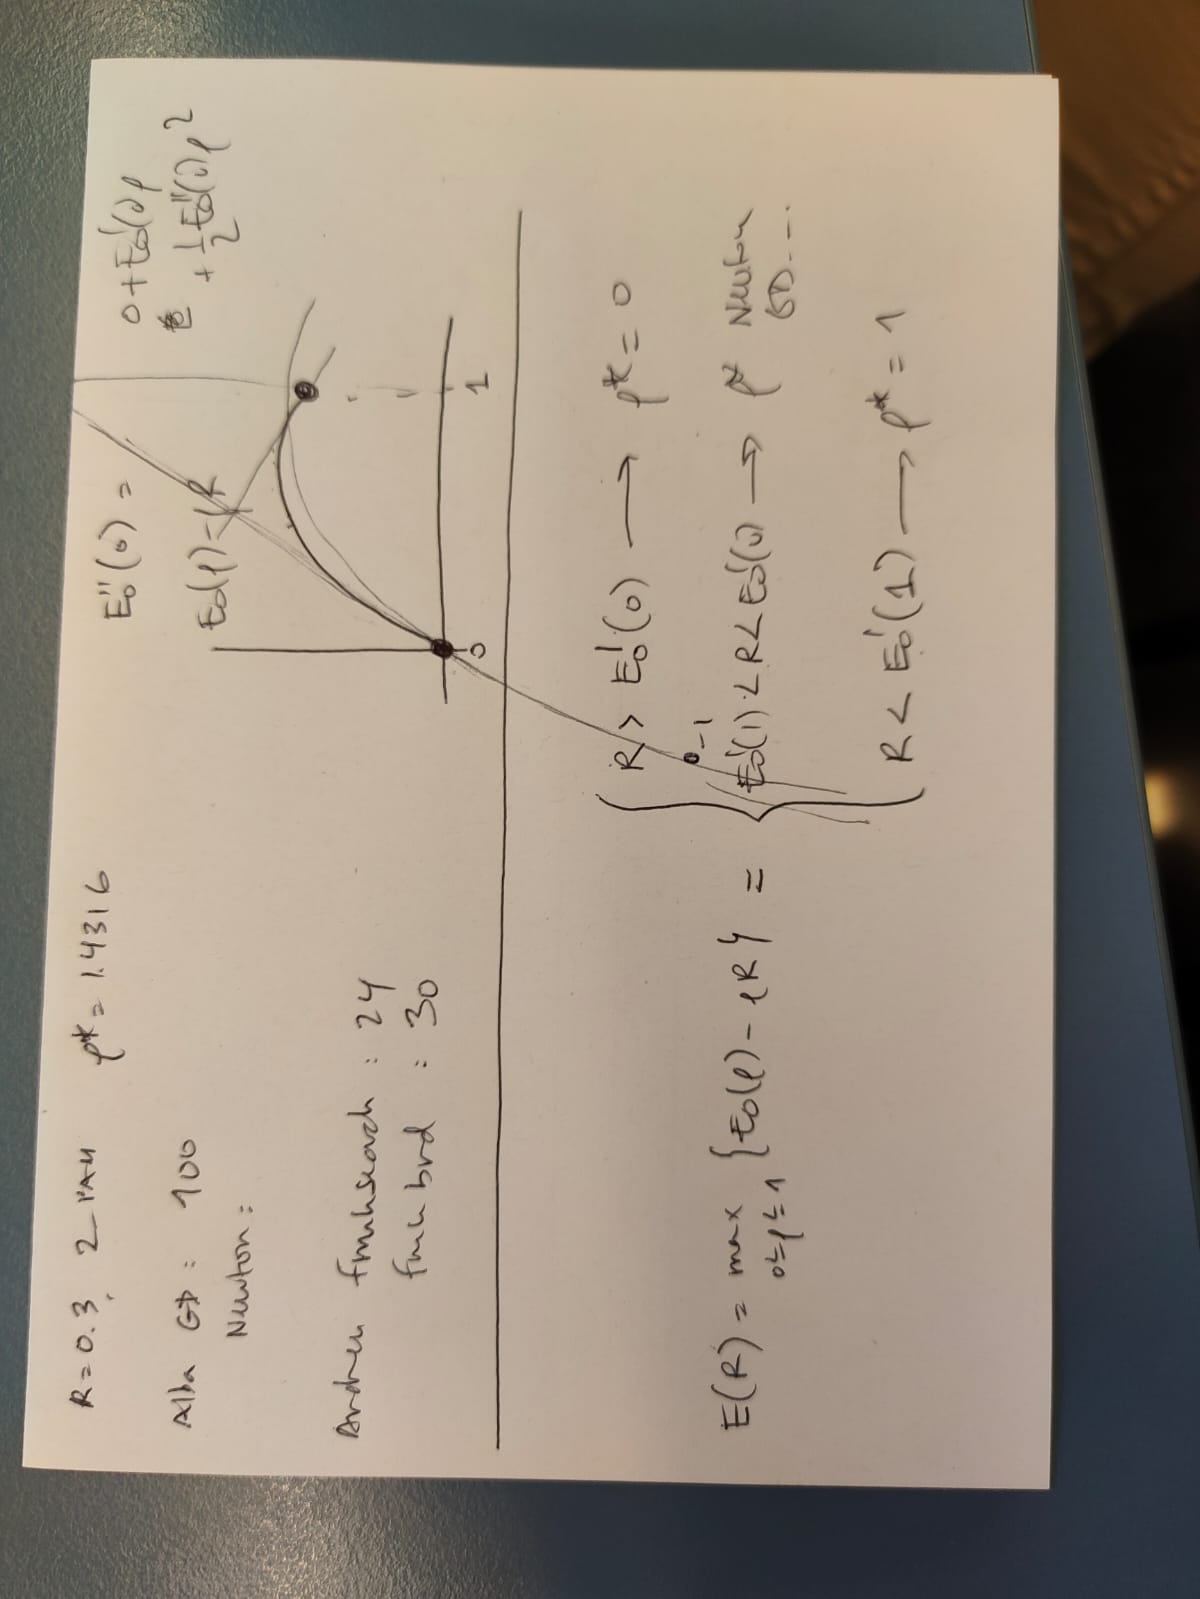 R=0.3, 2 PAM ρ* = 1.4316
Alba GD : 100
Newton :
Andreu fminsearch : 24
fminbnd : 30
E₀''(0) =
0+E₀'(0)ρ
+ 1/2 E₀''(0)ρ²
E₀(ρ)-ρR
0
1
E(R) = max {E₀(ρ) - ρR} =
0≤ρ≤1
R > E₀'(0) → ρ* = 0
0-1
E₀'(1) < R < E₀'(0) → ρ* Newton
GD...
R < E₀'(1) → ρ* = 1